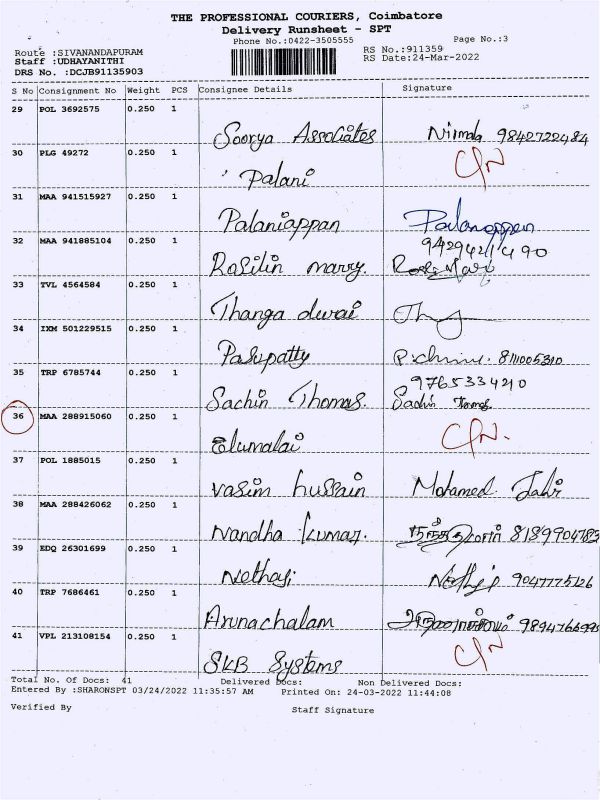 THE PROFESSIONAL COURIERS, Coimbatore
Delivery Runsheet - SPT
Phone No.:0422-3505555
Page No.:3
Route :SIVANANDAPURAM
Staff :UDHAYANITHI
DRS No. :DCJB91135903
RS No.:911359
RS Date:24-Mar-2022
S No Consignment No Weight PCS Consignee Details Signature
29 POL 3692575 0.250 1
Soorya Associates Nirmala 9842722484
30 PLG 49272 0.250 1
Palani
31 MAA 941515927 0.250 1
Palaniappan Palaniappan
32 MAA 941885104 0.250 1
Rosilin marry.
33 TVL 4564584 0.250 1
Thanga durai
34 IXM 501229515 0.250 1
Pasupatty 8111005310
35 TRP 6785744 0.250 1 9765334210
Sachin Thomas. Sachin Thomas
36 MAA 288915060 0.250 1
Elumalai
37 POL 1885015 0.250 1
vasim hussain Mohamed
38 MAA 288426062 0.250 1
Nandha kumar. 8189904783
39 EDQ 26301699 0.250 1
Nethaji Nethaji 9047775126
40 TRP 7686461 0.250 1
Arunachalam அருணாசலம்
41 VPL 213108154 0.250 1
SKB Systems
Total No. Of Docs: 41 Delivered Docs: Non Delivered Docs:
Entered By :SHARONSPT 03/24/2022 11:35:57 AM Printed On: 24-03-2022 11:44:08
Verified By Staff Signature